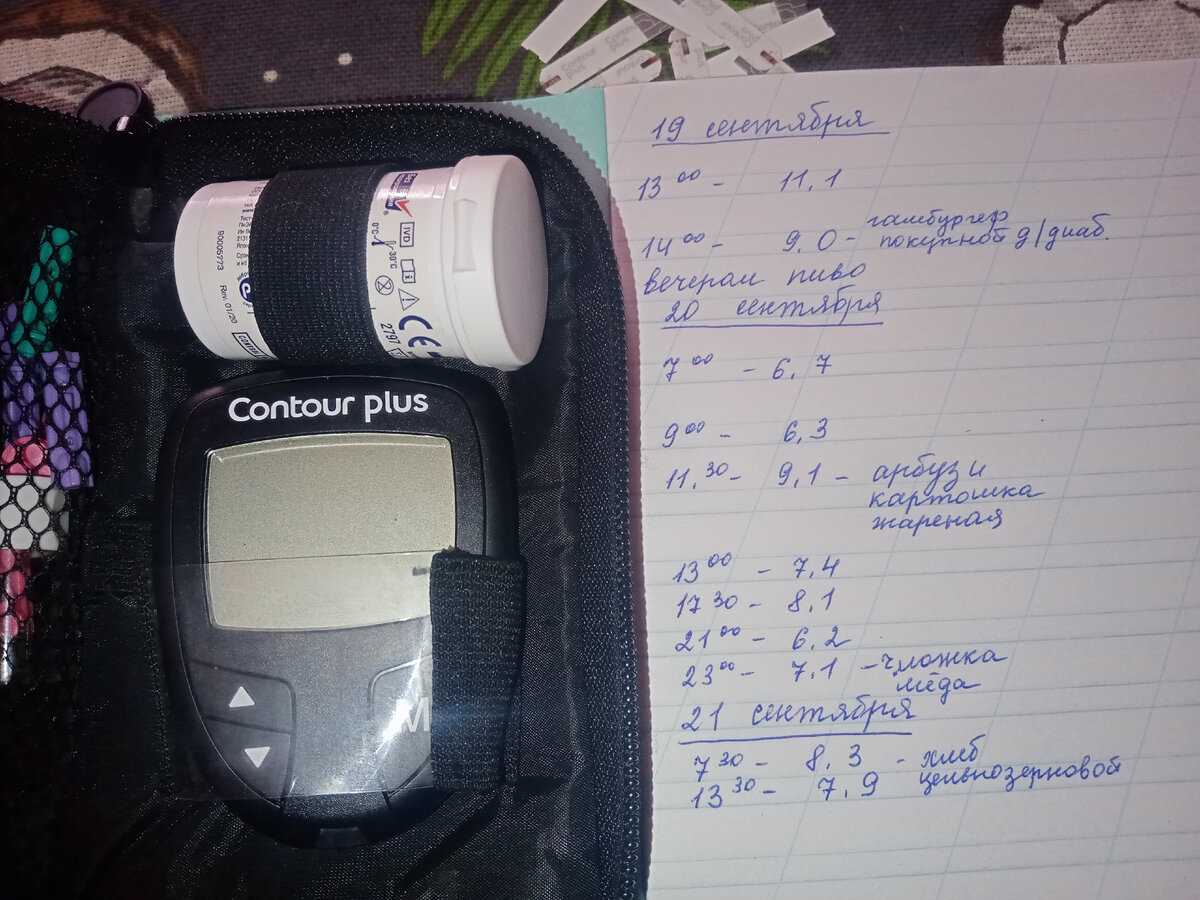 Contour plus
Contour
plus
90005773 Rev. 01/20
IVD
0°C
30°C
2797
Contour plus
M
19 сентября
13 00 - 11,1
14 00 - 9,0 - гамбургер
покупной д/диаб.
вечером пиво
20 сентября
7 00 - 6,7
9 00 - 6,3
11,30 - 9,1 - арбуз и
картошка
жареная
13 00 - 7,4
17 30 - 8,1
21 00 - 6,2
23 00 - 7,1 - ч.ложка
мёда
21 сентября
7 30 - 8,3 - хлеб
цельнозерновой
13 30 - 7,9